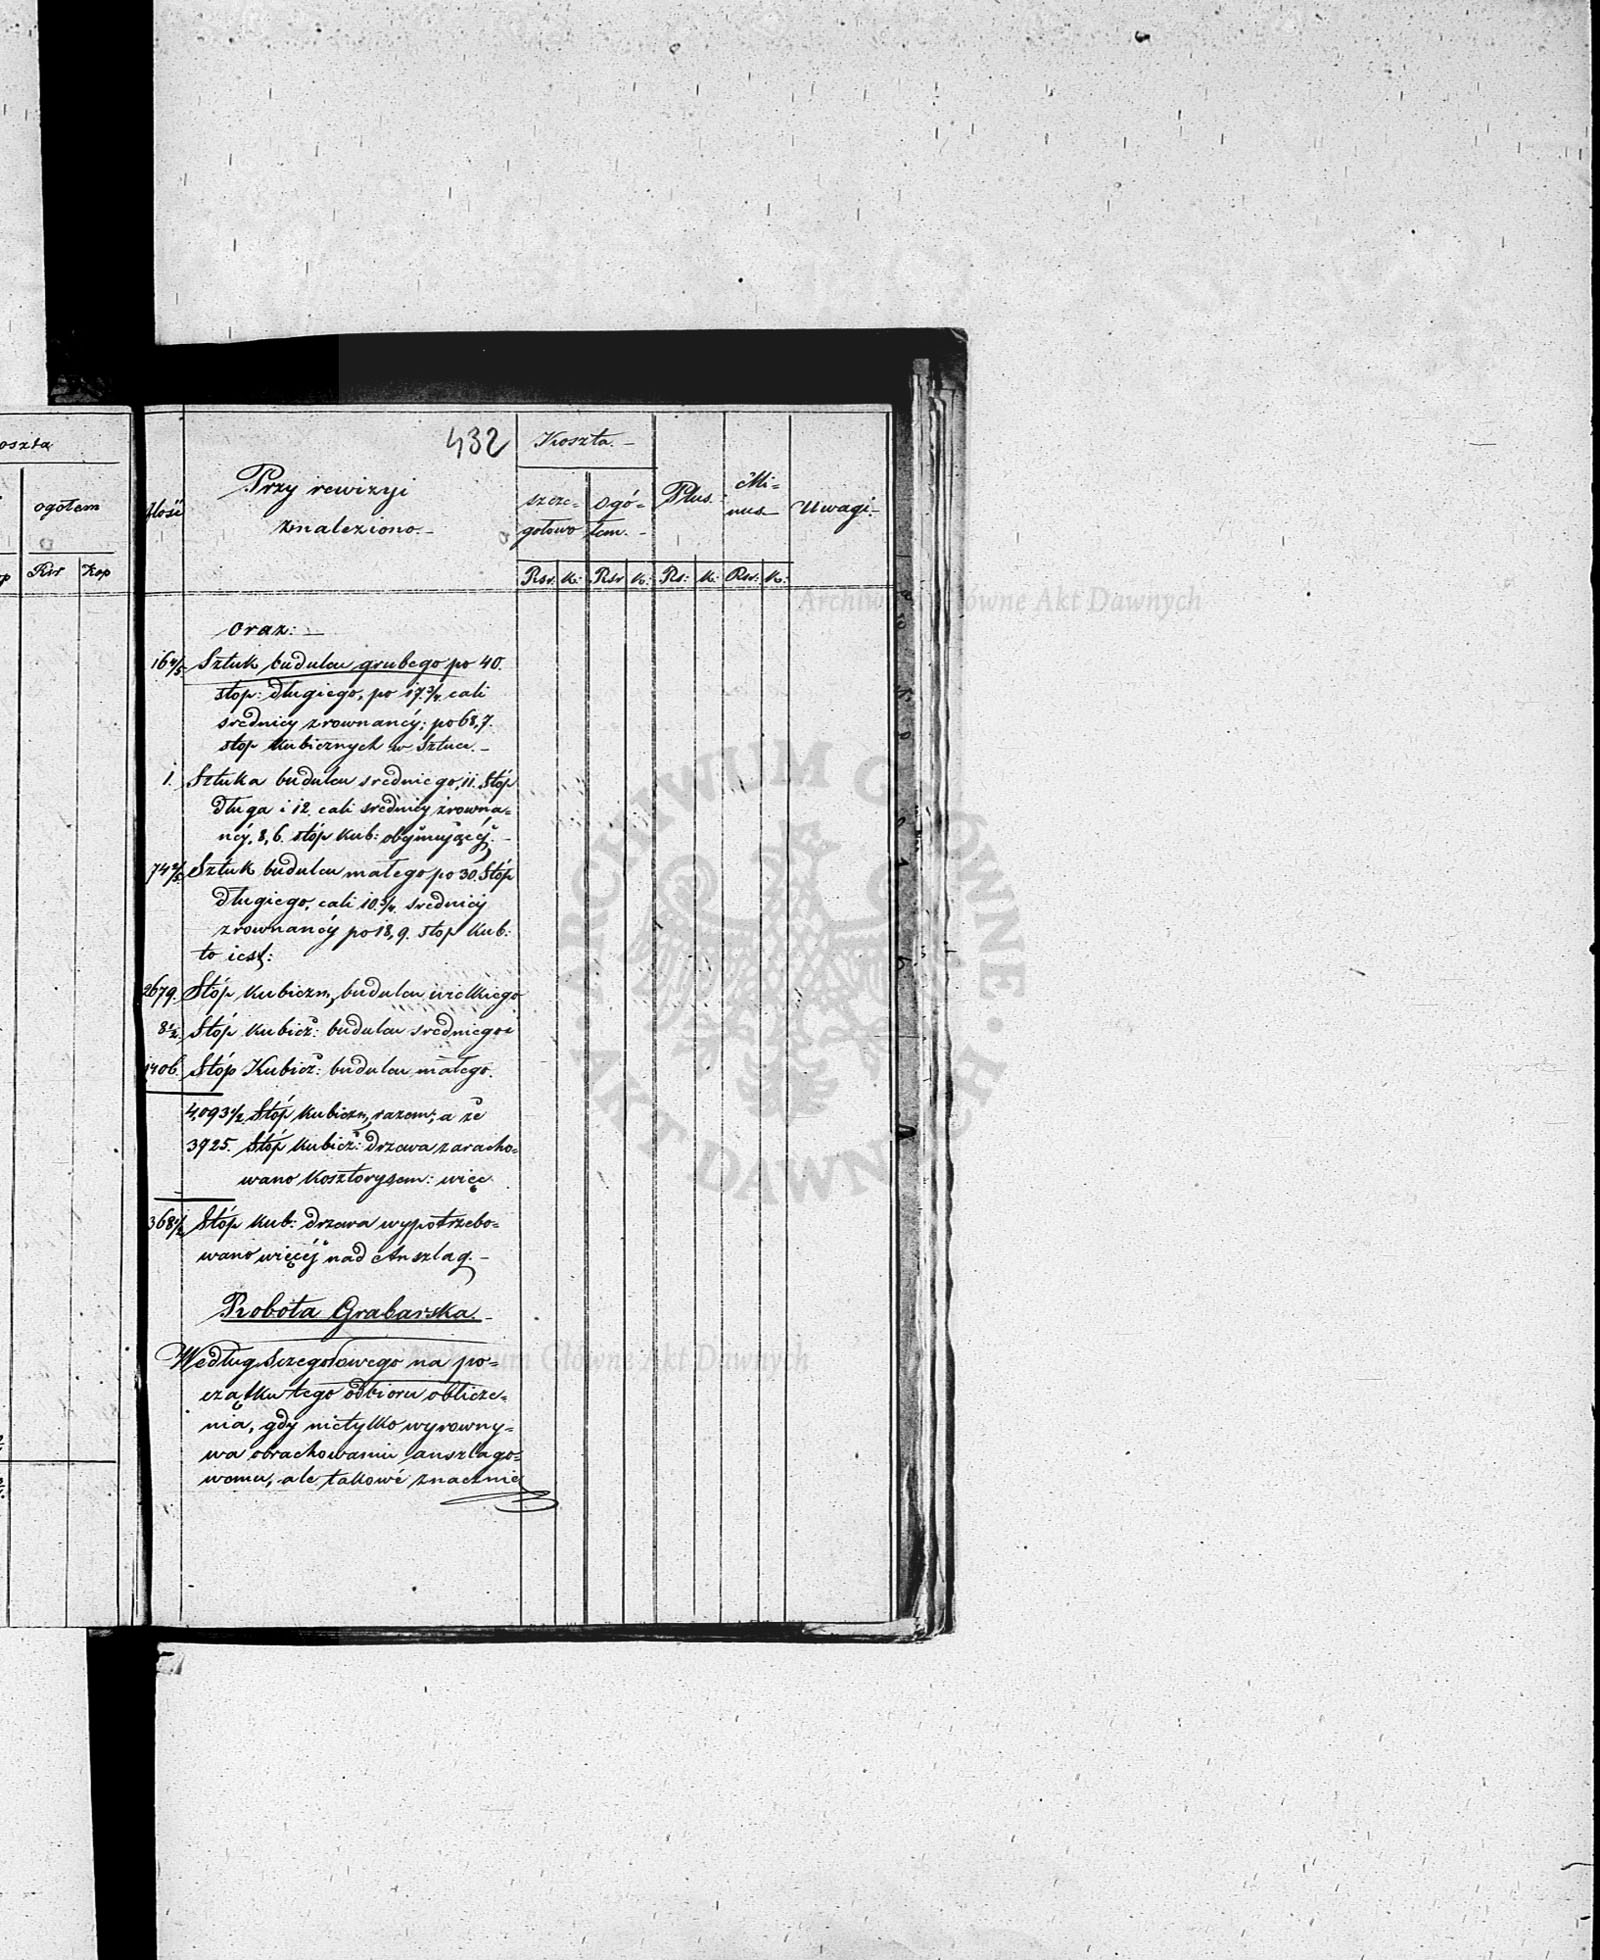 oszta
ogołem
Rsr Kop
432
Ilość
Przy rewizyi
znaleziono.-
Koszta.-
szcze-
gołowo
Ogó-
łem.-
Plus.
Mi-
nus
Uwagi.-
Rsr. k: Rsr k: Rs: k: Rsr: k:
oraz:-
16 4/5 Sztuk budulcu grubego po 40.
stop: długiego, po 17 3/4 cali
srednicy zrownanéy; po 68,7.
stop kubicznych w Sztuce.-
1. Sztuka budulcu sredniego, 11. Stóp
długa i 12. cali srednicy zrowna-
néy, 8,6. stóp kub: obejmującéj.-
74 2/5 Sztuk budulcu małego po 30. Stóp
długiego, cali 10 3/4 srednicy
zrownanéy po 18,9. stop Kub:
to iest:
2679. Stóp kubiczn, budulcu wielkiego
8 1/2. Stóp kubicz: budulcu sredniego i
1406. Stóp Kubicz: budulcu małego.
4,093 1/2 Stóp kubiczn, razem; a że
3925. Stóp kubicz: drzewa zaracho-
wano Kosztorysem: więc
368 1/2 Stóp kub: drzewa wypotrzebo-
wano więcéj nad Anszlag.-
Robota Grabarska.-
Według Szczegołowego na po-
czątku tego odbioru oblicze-
nia, gdy nietylko wyrowny-
wa obrachowaniu anszlago-
wemu, ale takowé znacznie
Archiwum Główne Akt Dawnych
Archiwum Główne Akt Dawnych
ARCHIWUM GŁÓWNE AKT DAWNYCH